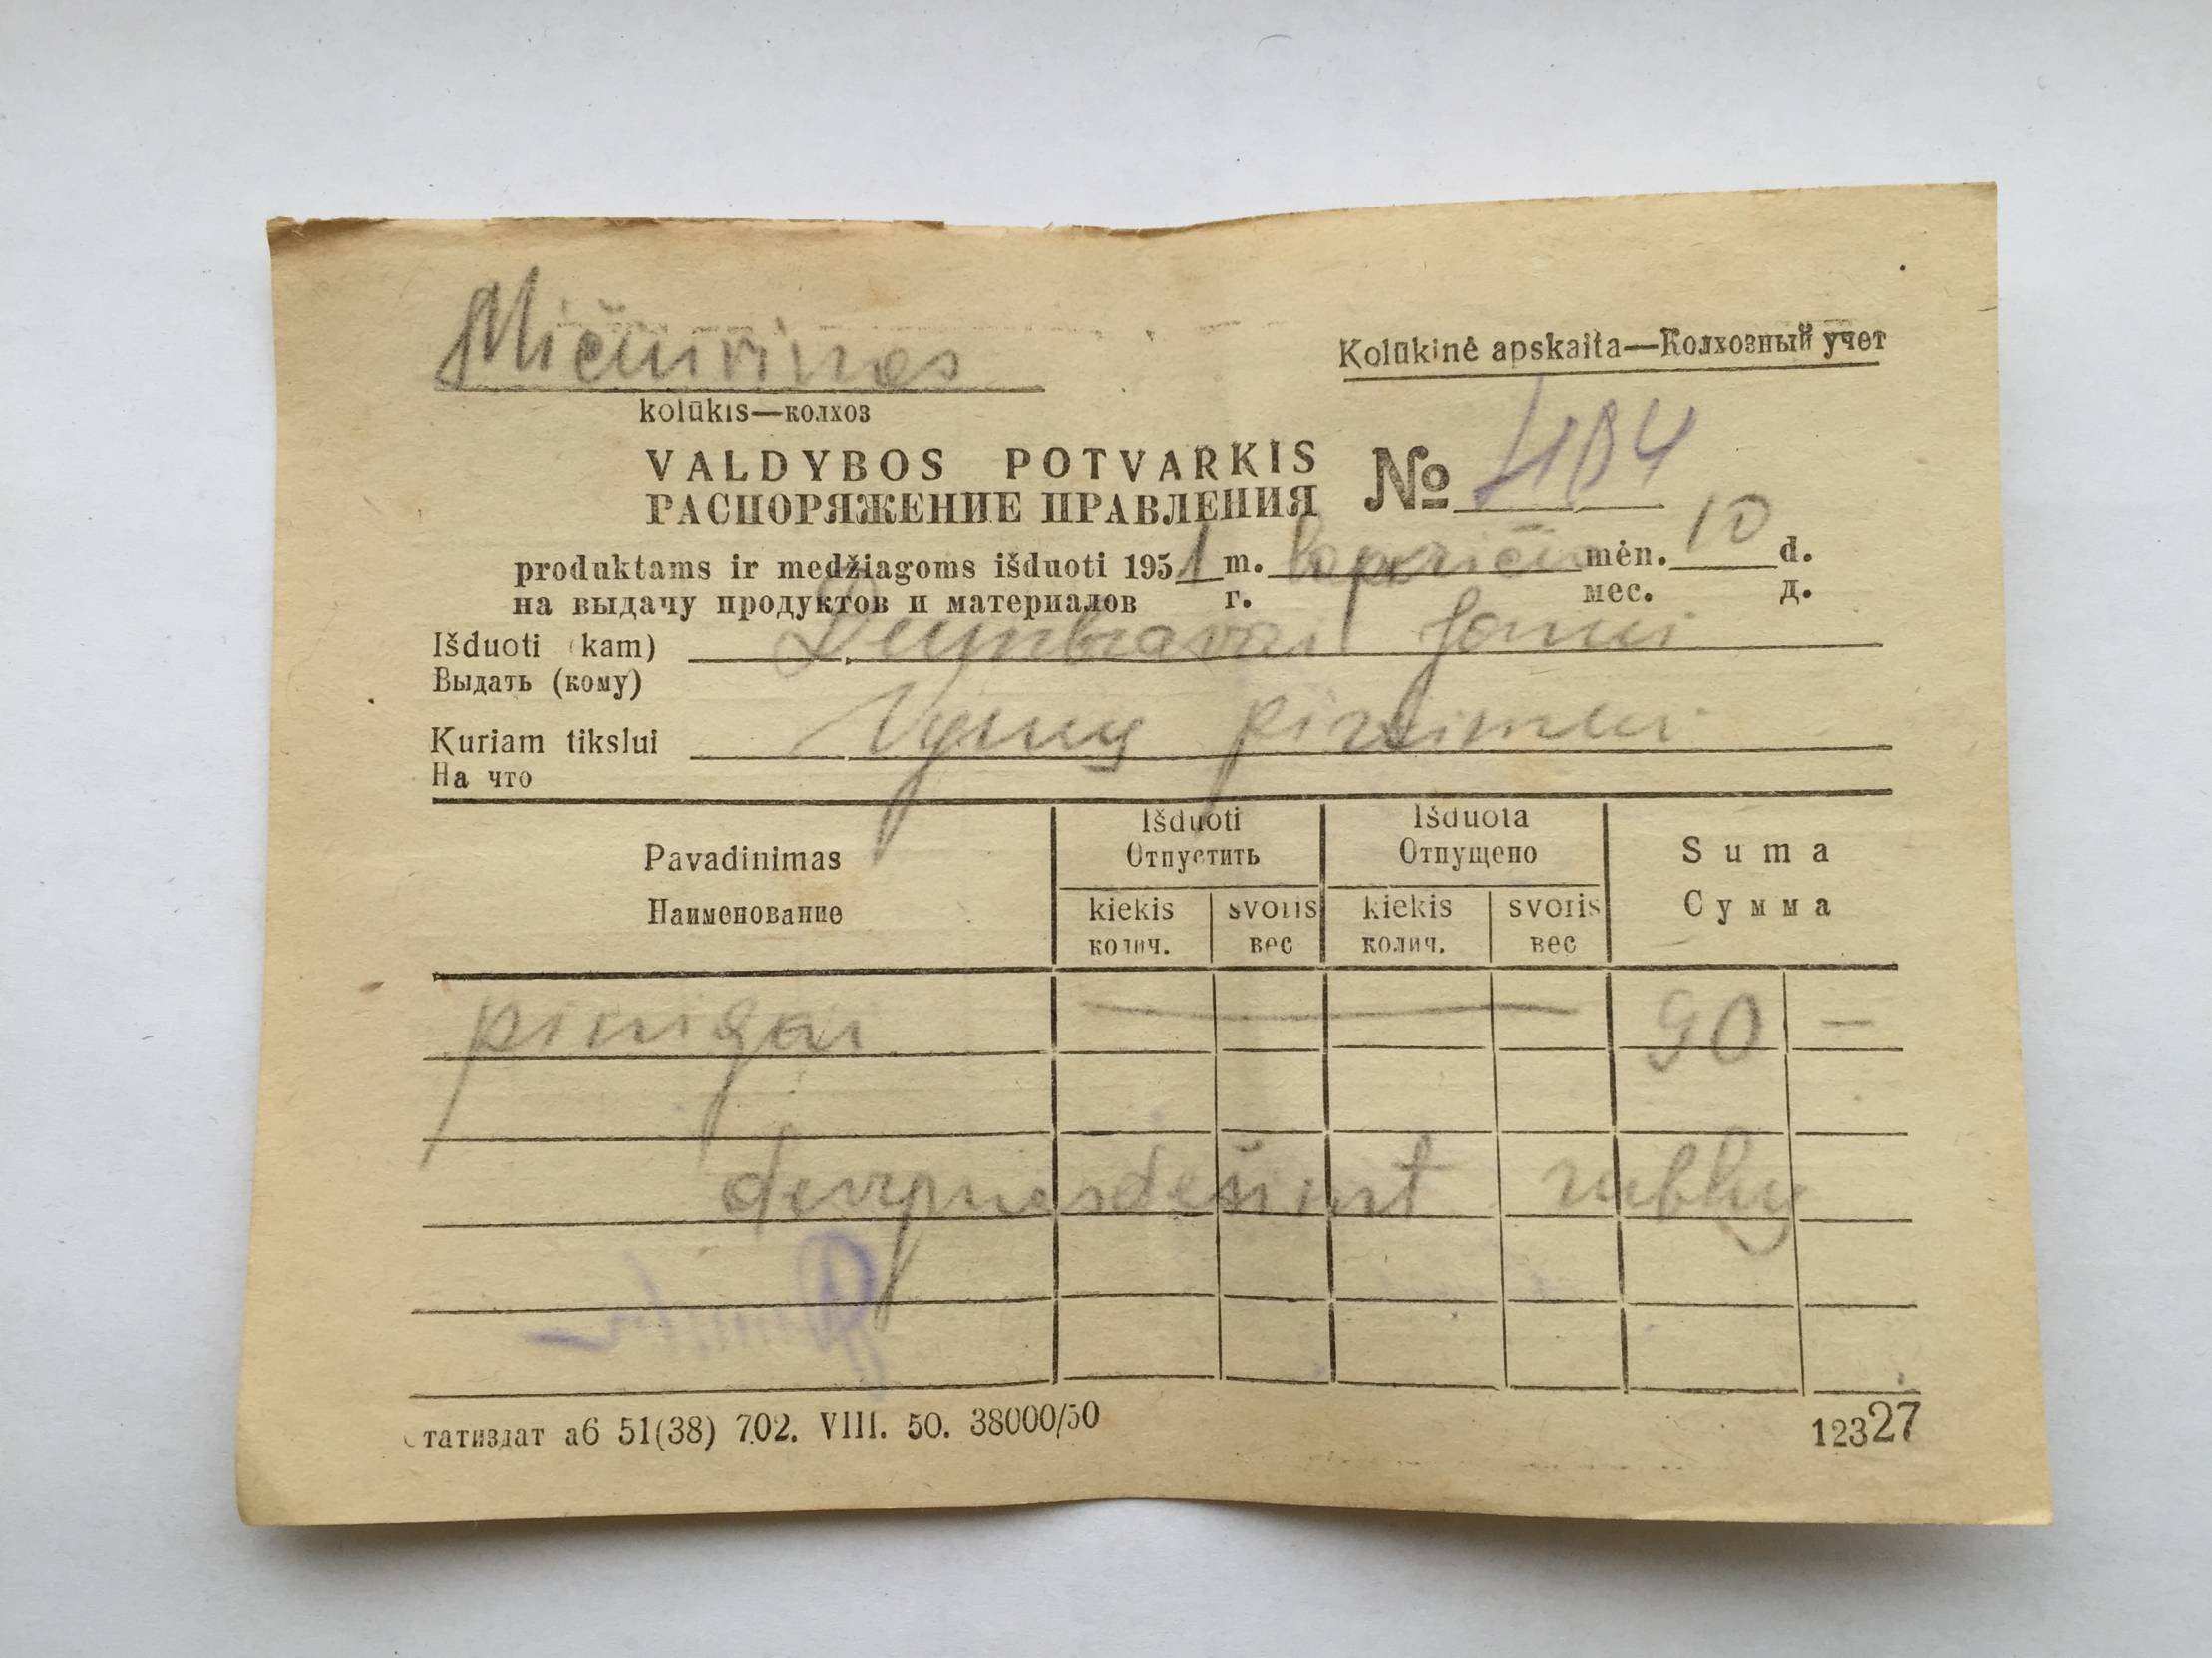 Mičiurinos
Kolūkinė apskaita—Колхозный учет
kolūkis—колхоз
VALDYBOS POTVARKIS
РАСПОРЯЖЕНИЕ ПРАВЛЕНИЯ № 484
produktams ir medžiagoms išduoti 1951 m. lapkričio mėn. 10 d.
на выдачу продуктов и материалов г. мес. д.
Išduoti (kam) Jonui
Выдать (кому)
Kuriam tikslui Vynių pirkimui
На что
Pavadinimas Išduoti Išduota Suma
Наименование Отпустить Отпущено Сумма
kiekis svoris kiekis svoris
колич. вес колич. вес
pinigai — 90 —
devynesdešimt rublių
татиздат аб 51(38) 702. VIII. 50. 38000/50
12327